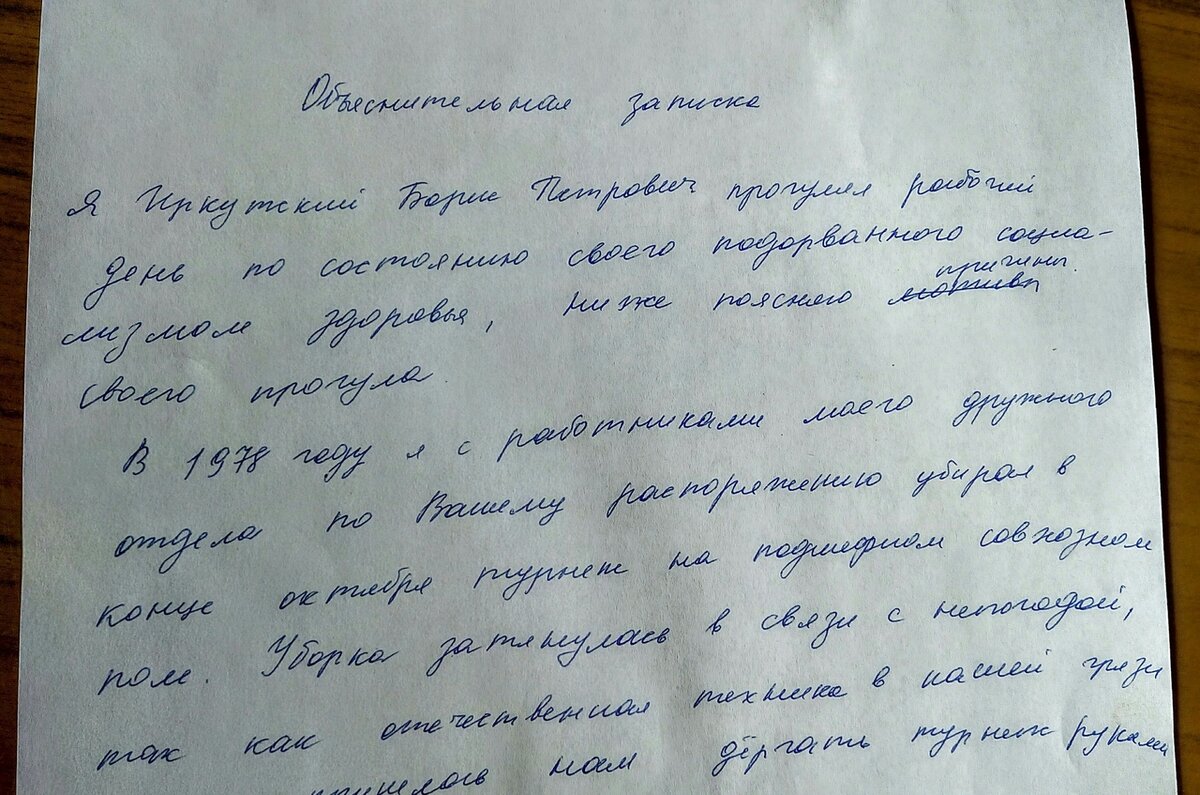 Объяснительная записка
Я Иркутский Борис Петрович прогулял рабочий
день по состоянию своего подорванного социа-
причины
лизмом здоровья, ниже поясняю мотивы
своего прогула
В 1978 году я с работниками моего дружного
отдела по Вашему распоряжению убирал в
конце октября турнепс на подшефном совхозном
поле. Уборка затянулась в связи с непогодой,
так как отечественная техника в нашей грязи
пришлось нам дёргать турнепс руками